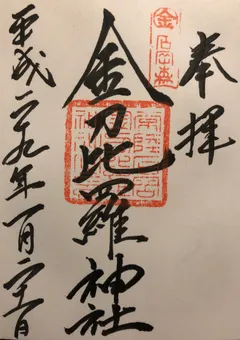 奉拝
金刀比羅神社
平成二十九年一月二十一日